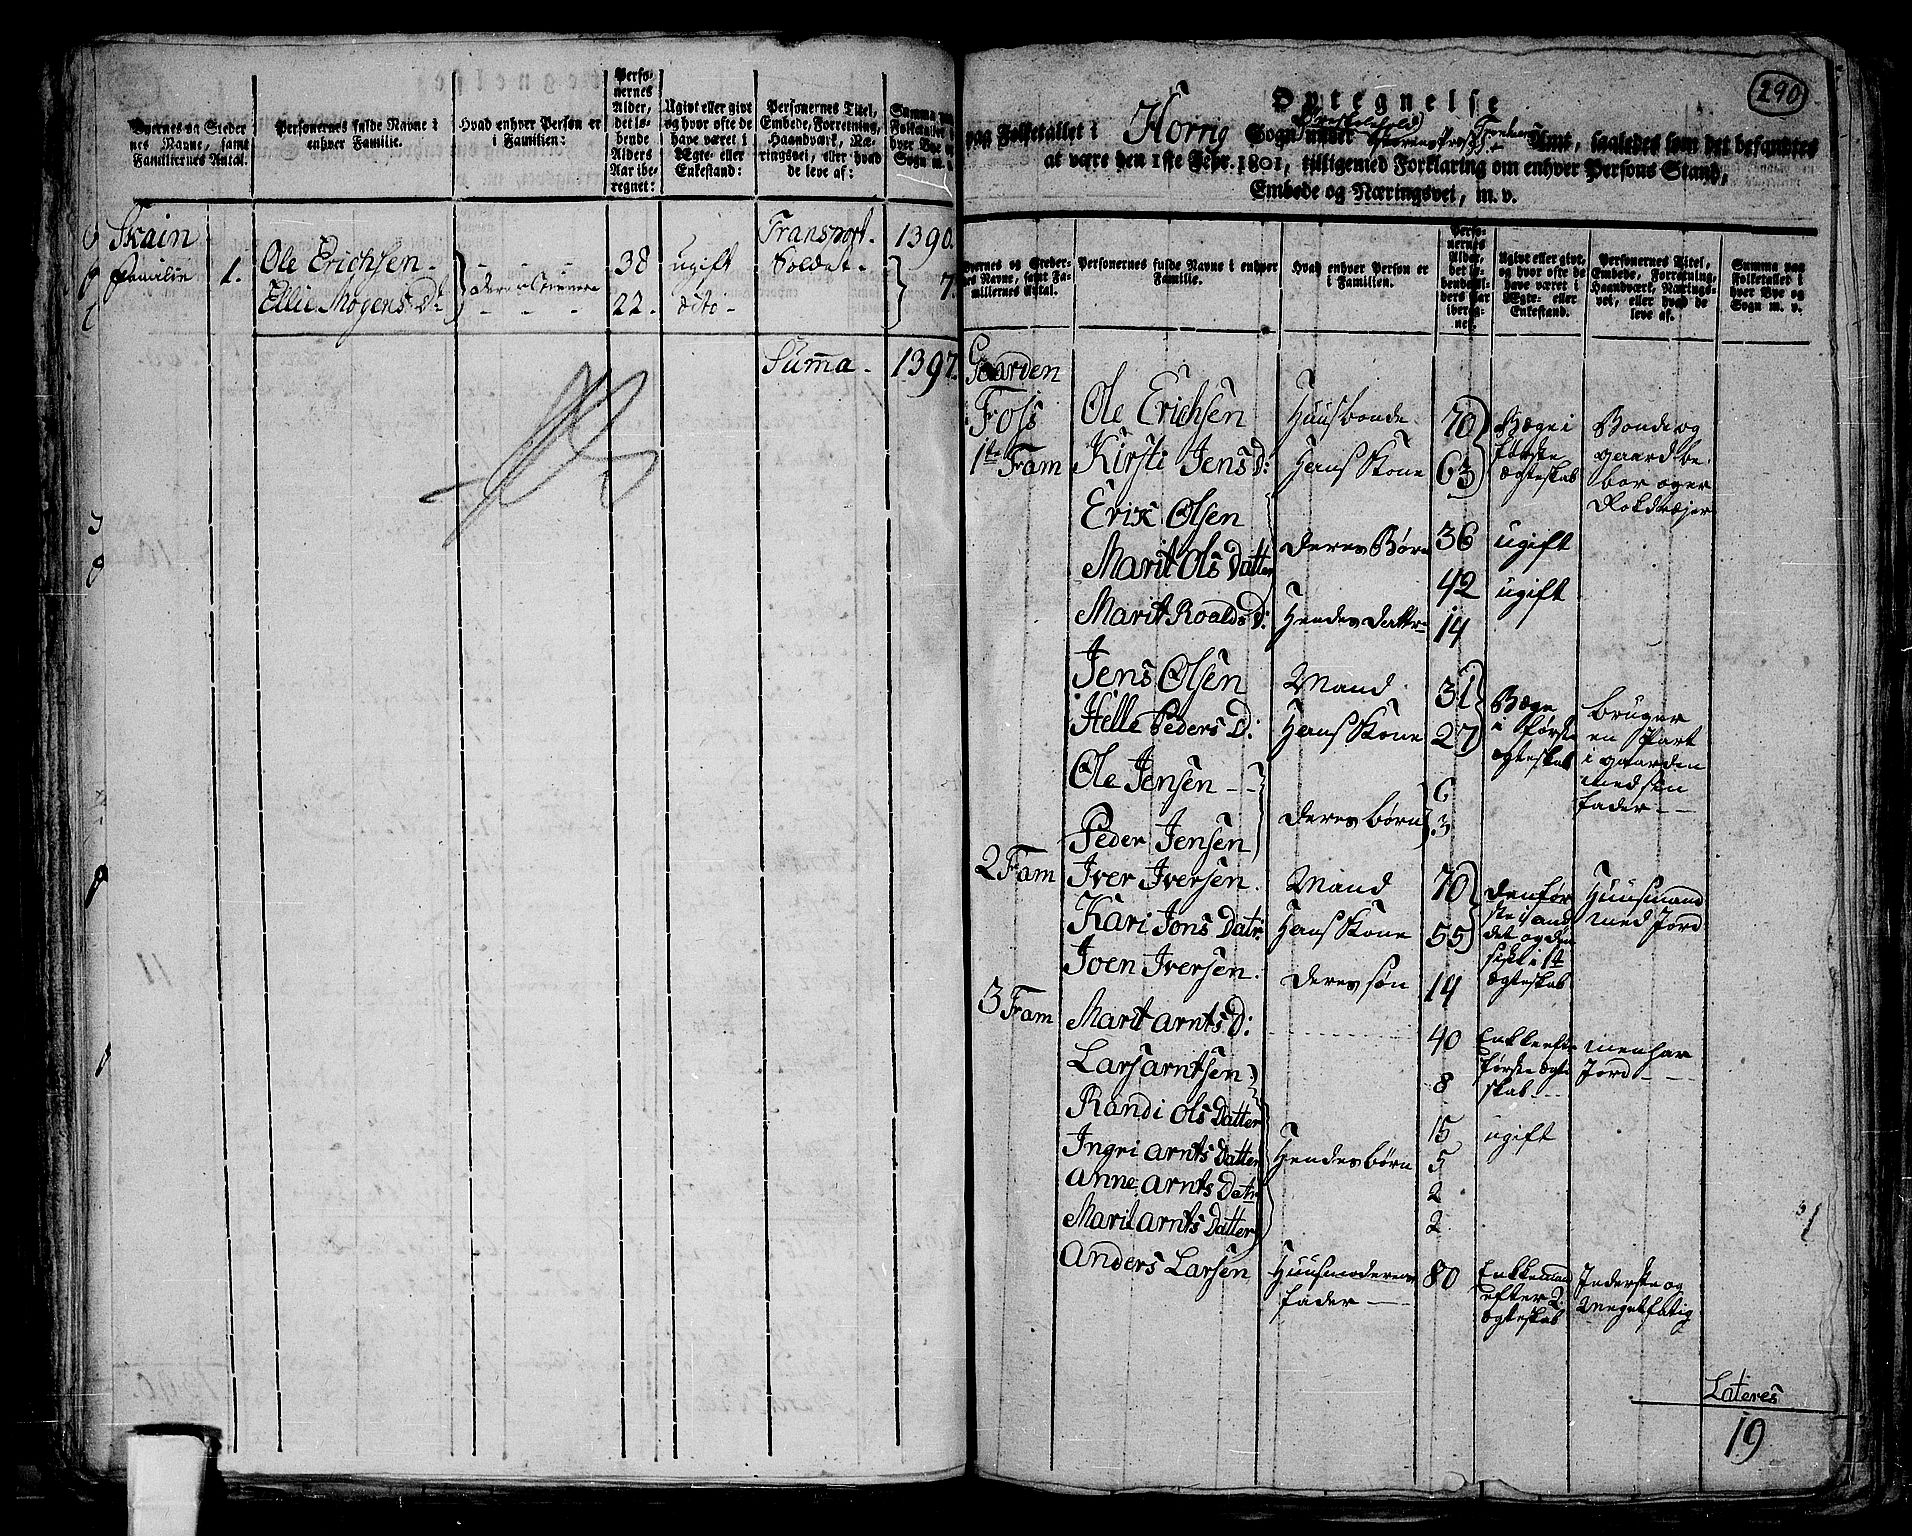 Byernes og Steder
nes Navne, samt
Familiernes Antal.
Personernes fulde Navne i
enhver Familie.
Hvad enhver Person er
i Familien:
Perso-
nernes
Alder,
det lø-
bende
Alders
Aar ibe-
regnet:
Ugivt eller givt
og hvor ofte de
have været i
Ægte- eller
Enkestand:
Personernes Titel,
Embede, Forretning,
Haandværk, Næ-
ringsvei, eller hvad
de leve af:
Summa paa
Folketallet i
hver Bye og
Sogn m. v.
Skain
Transport. 1390.
Familie 1. Ole Erichsen 38 ugift Soldat.
Ellie Mogens D. 22. dito 7.
Summa 1397.
290
Optegnelse
paa Folketallet i Horrig Sogn under Amt, saaledes som det befandtes
at være den 1ste Febr. 1801, tilligemed Forklaring om enhver Persons Stand,
Embede og Næringsvei, m. v.
Byernes og Steder-
nes Navne, samt Fa-
miliernes Antal.
Personernes fulde Navne i enhver
Familie.
Hvad enhver Person er
i Familien.
Perso-
nernes
Alder,
det lø-
bendeAl-
ders Aar
ibereg-
net.
Ugivt eller givt,
og hvor ofte de
have været i
Ægte- eller
Enkestand.
Personernes Titel,
Embede, Forretning,
Haandværk, Nærings-
vei, eller hvad de
leve af.
Summa paa
Folketallet i
hver Bye og
Sogn m. v.
Gaarden
Fols Ole Erichsen Huusbonde 70 Begge i Bonde og
1te Fam Kirsti Jens D: Hans Kone 63 første gaard be
ægteskab
Erik Olsen 36 ugift
Deres Børn
Marit Ols Datter 42 ugift
Marit Roalds D: Hendes Datter 14
Jens Olsen Mand 31 Begge bruger
Helle Peders D: Hans Kone 27 i første en Part
ægteskab i gaarden
Ole Jensen 6 med sin
fader
Deres børn
Peder Jensen 3
2 Fam Iver Iversen Mand 70 Den før Huusmand
Kari Jons Datr. Hans Kone 55 ste and med Jord
det og den
Joen Iversen. Deres søn 14 sidst i 1te
ægteskab
3 Fam Marit Arnts D: 40 Enke efter men har
Lars Arntsen 8 første ægte Jord
skab
Randi Ols Datter 15 ugift
Ingri Arnts Datter Hendes børn 5
Anne Arnts Datr 2
Marit Arnts Datter 2
Anders Larsen Huusmoderens 80 Enkemand Inderste og
fader efter 2 meget fattig
ægteskab
Lateres
19